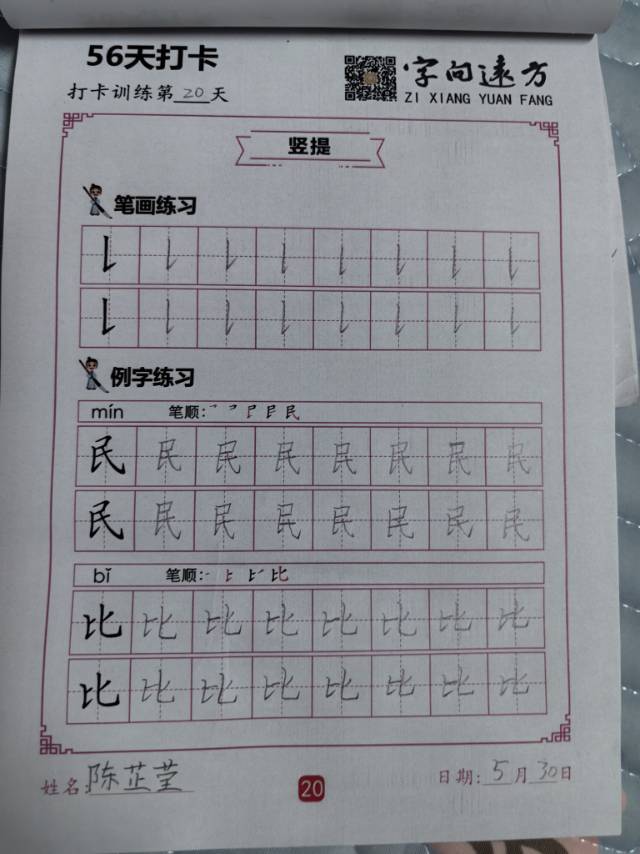 56天打卡
打卡训练第20天
字向遠方
ZI XIANG YUAN FANG
竖提
笔画练习
例字练习
mín 笔顺:
民 民 民 民 民 民 民 民
民 民 民 民 民 民 民 民
bǐ 笔顺:
比 比 比 比 比 比 比 比
比 比 比 比 比 比 比 比
姓名:陈芷莹
20
日期:5月30日